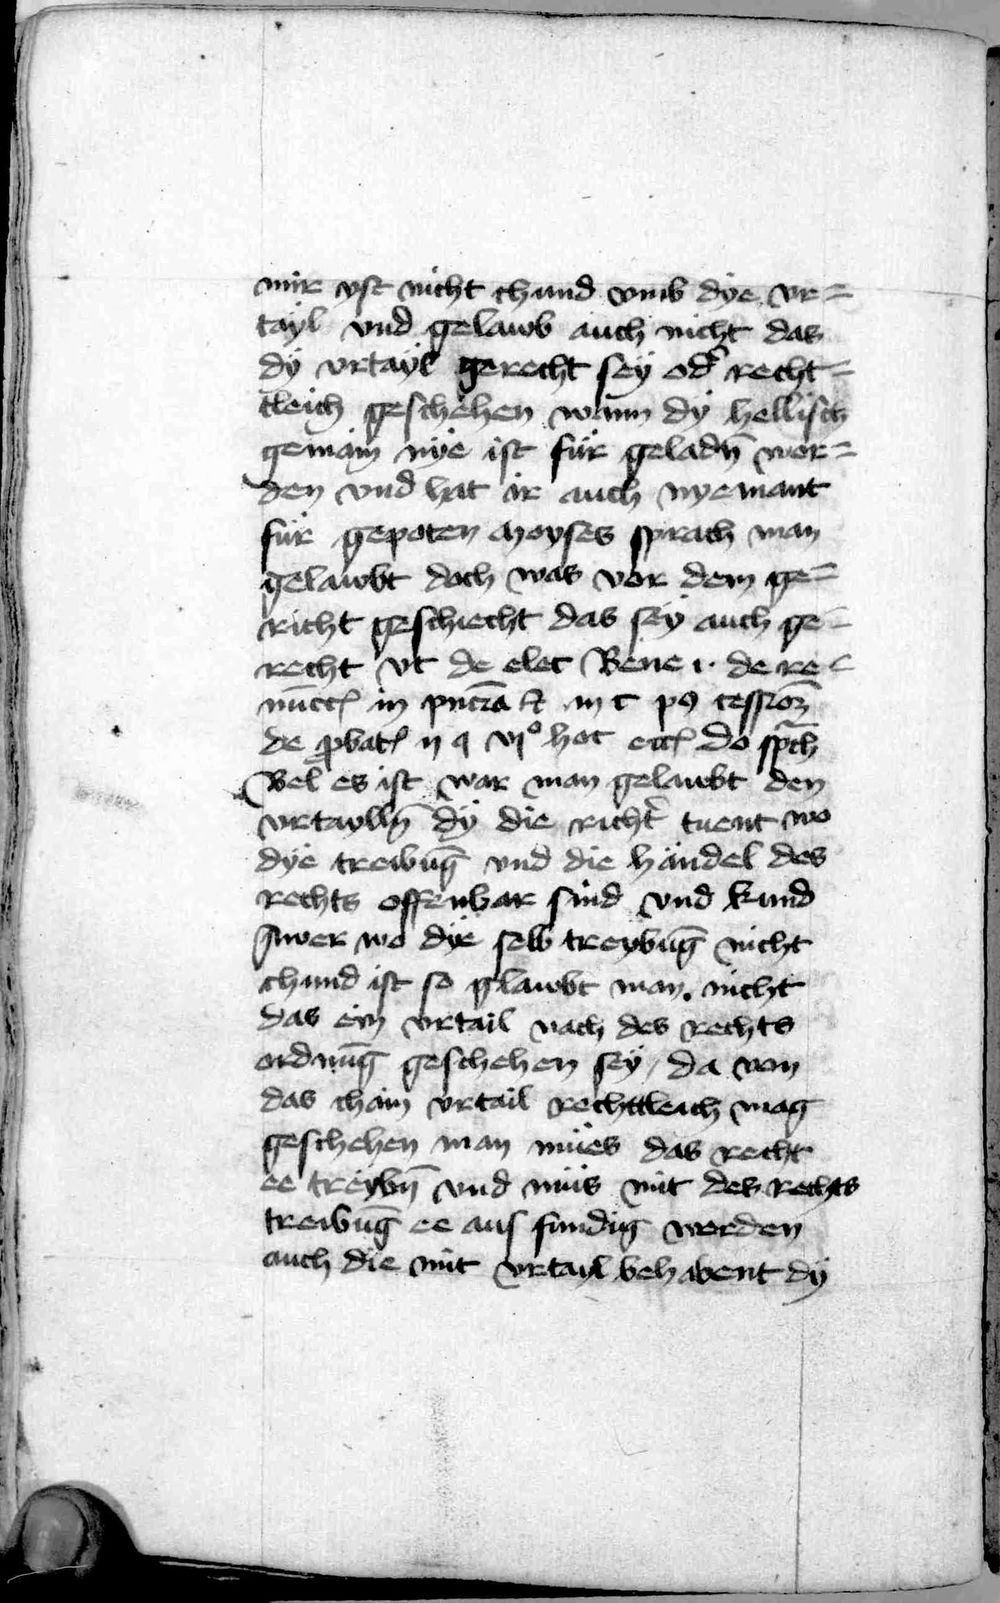 mir yst nicht chund vmb dye vr=
tayl vnd gelawb auch nicht das
dÿ vrtayl gerecht seÿ od̾ recht=
tleich geschehen wann dÿ hellisch
gemain nÿe ist für geladn̄ wor=
den vnd hat ir auch nyemant
für gepoten Moyses sprach man
gelawbt doch was vor dem ge=
richt geschiecht das seÿ auch ge=
recht vt de elec Bene i. de re=
in
de ꝓbat ij q vjº hoc do sp̄ch
Bel es ist war man gelawbt den
vrtaylln̄ dÿ die richt̾ tuent wo
dÿe treibūg vnd die händel des
rechts offenbar sind vnd kund
Swer wo dÿe selb treybūg nicht
chund ist so glawbt man nicht
das ein vrtail nach des rechts
ordnūg geschehen seÿ / da von
das chain vrtail rechttleich mag
geschehen man mües das recht
ee treÿbn̄ vnd müs mit des rechts
treibūg ee aus fundig werden
auch die mit vrtayl behabent dÿ